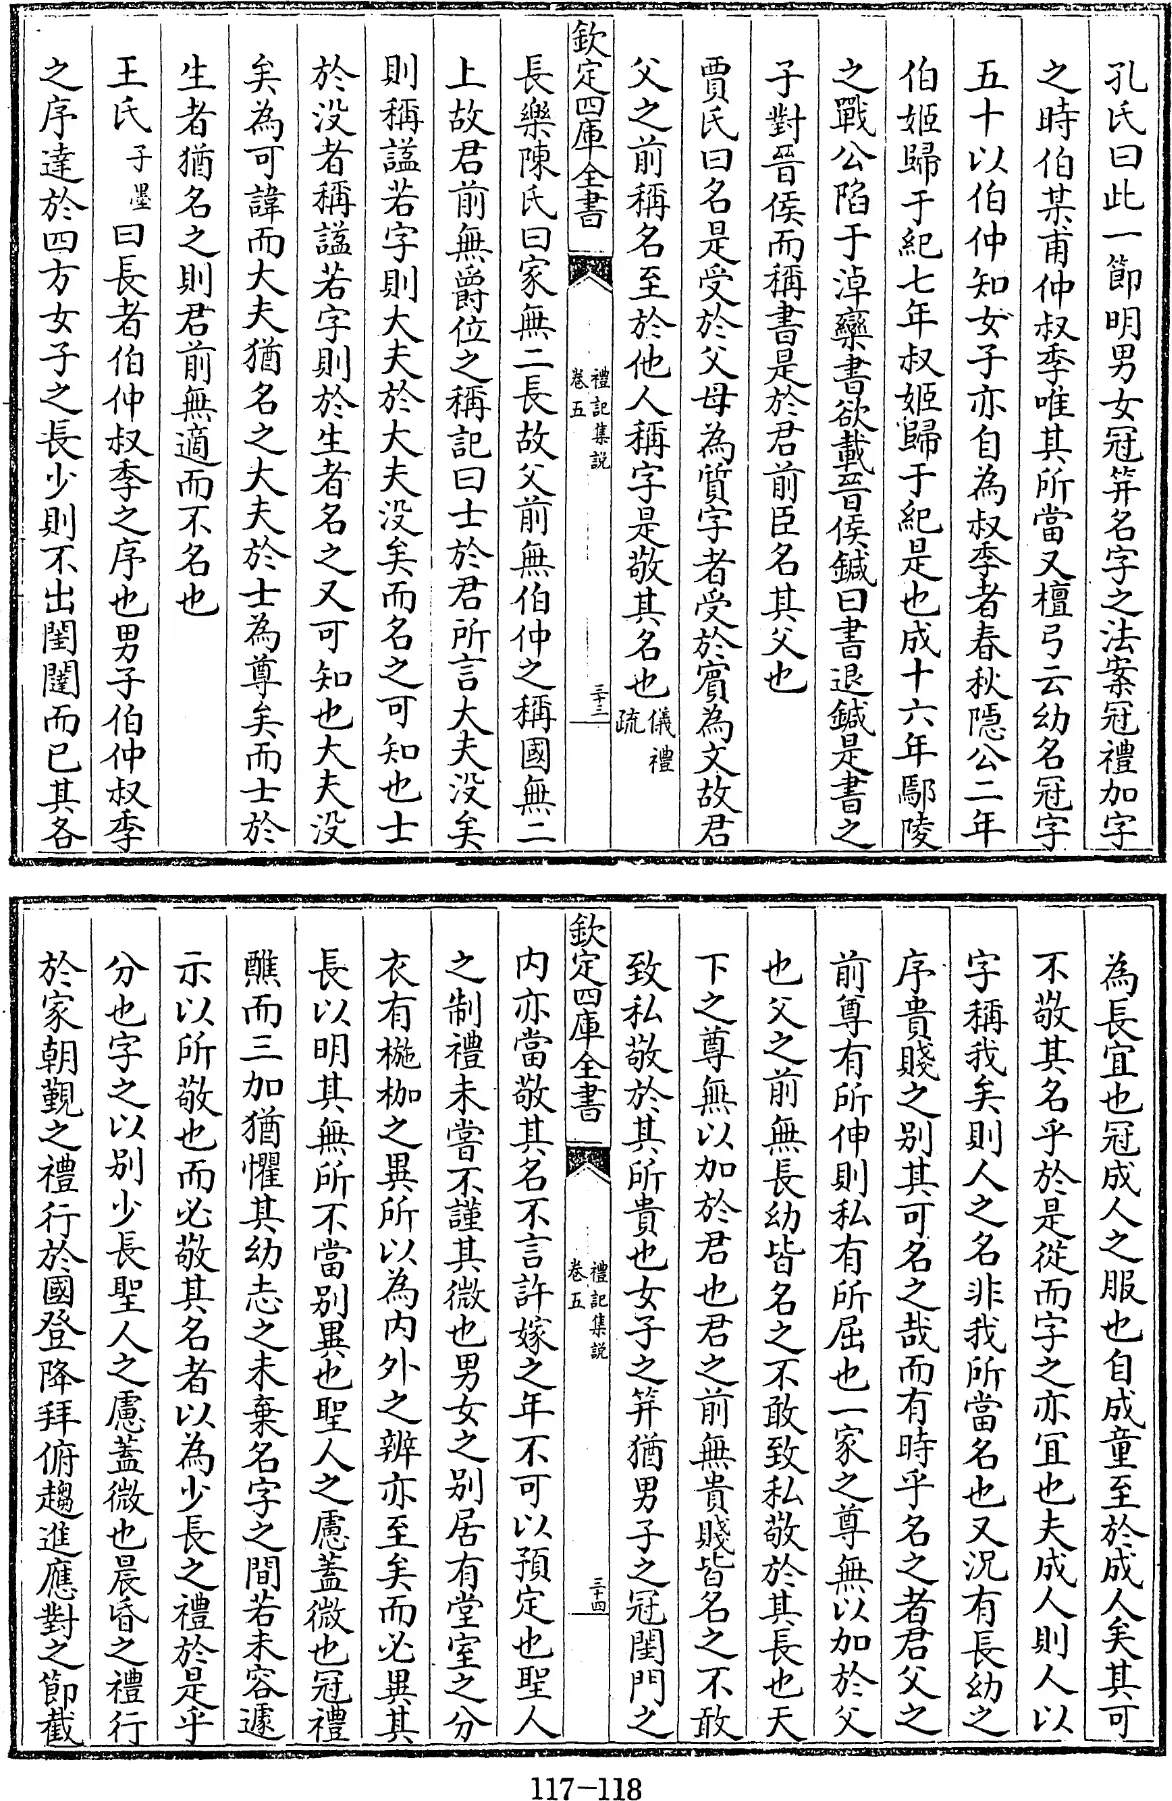 孔氏曰此一節明男女冠笄名字之法案冠禮加字
之時伯某甫仲叔季唯其所當又檀弓云幼名冠字
五十以伯仲知女子亦自為叔季者春秋隱公二年
伯姬歸于紀七年叔姬歸于紀是也成十六年鄢陵
之戰公陷于淖欒書欲載晉侯鍼曰書退鍼是書之
子對晉侯而稱書是於君前臣名其父也
賈氏曰名是受於父母為質字者受於賓為文故君
父之前稱名至於他人稱字是敬其名也儀禮疏
欽定四庫全書
禮記集說
卷五
三十三
長樂陳氏曰家無二長故父前無伯仲之稱國無二
上故君前無爵位之稱記曰士於君所言大夫没矣
則稱謚若字則大夫於大夫没矣而名之可知也士
於没者稱謚若字則於生者名之又可知也大夫没
矣為可諱而大夫猶名之大夫於士為尊矣而士於
生者猶名之則君前無適而不名也
王氏子墨曰長者伯仲叔季之序也男子伯仲叔季
之序達於四方女子之長少則不出閨闥而已其各
為長宜也冠成人之服也自成童至於成人矣其可
不敬其名乎於是從而字之亦宜也夫成人則人以
字稱我矣則人之名非我所當名也又況有長幼之
序貴賤之别其可名之哉而有時乎名之者君父之
前尊有所伸則私有所屈也一家之尊無以加於父
也父之前無長幼皆名之不敢致私敬於其長也天
下之尊無以加於君也君之前無貴賤皆名之不敢
致私敬於其所貴也女子之笄猶男子之冠閨門之
欽定四庫全書
禮記集說
卷五
三十四
内亦當敬其名不言許嫁之年不可以預定也聖人
之制禮未嘗不謹其微也男女之别居有堂室之分
衣有椸枷之異所以為内外之辨亦至矣而必異其
長以明其無所不當别異也聖人之慮蓋微也冠禮
醮而三加猶懼其幼志之未棄名字之間若未容遽
示以所敬也而必敬其名者以為少長之禮於是乎
分也字之以别少長聖人之慮蓋微也晨昏之禮行
於家朝覲之禮行於國登降拜俯趨進應對之節截
117-118